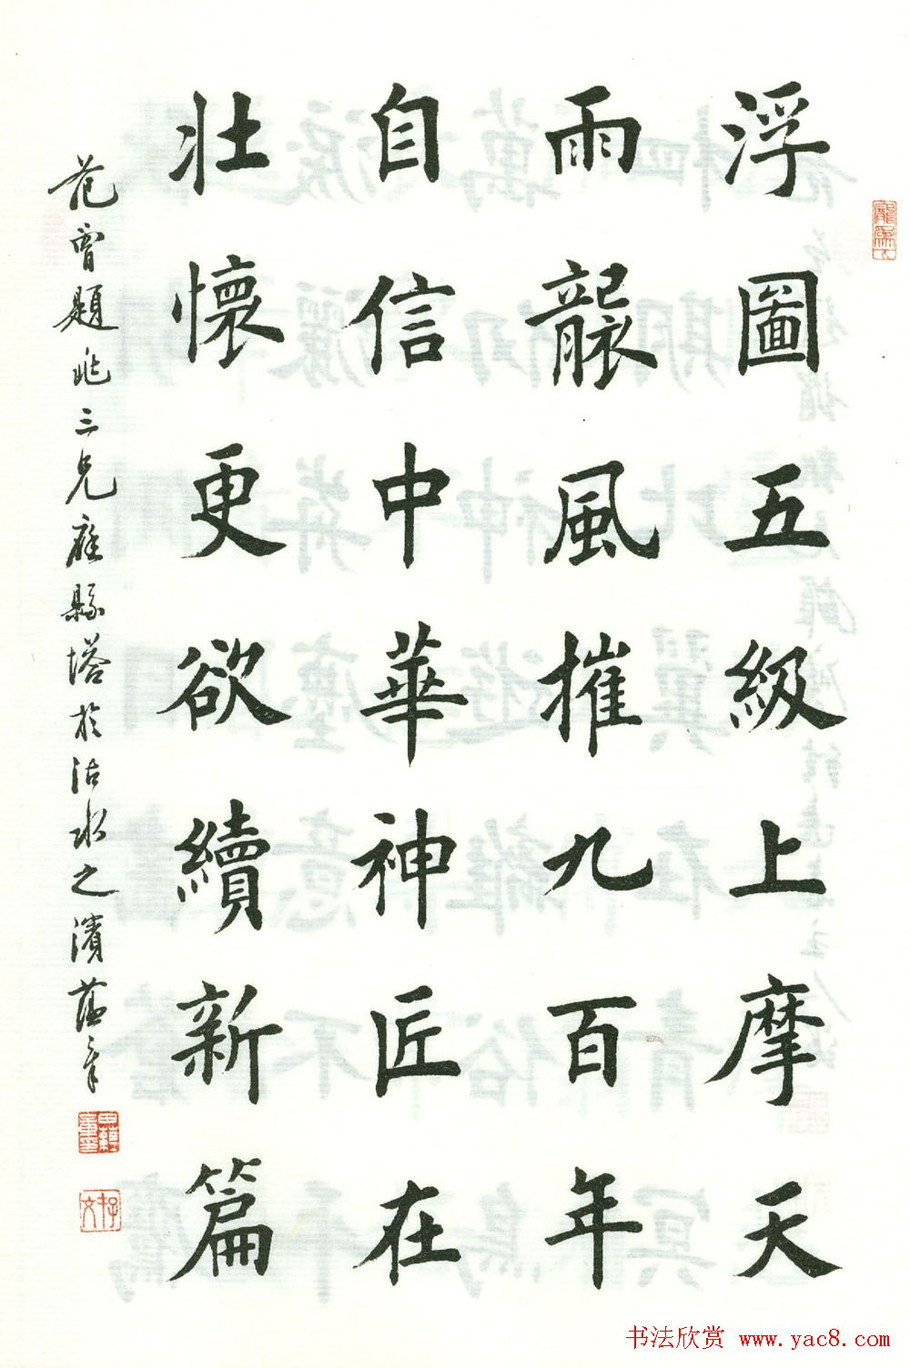 浮圖五級上摩天
雨龑風摧九百年
自信中華神匠在
壯懷更欲續新篇
范曾題兆三兄應縣塔於沽水之濱蕴章
书法欣赏 www.yac8.com